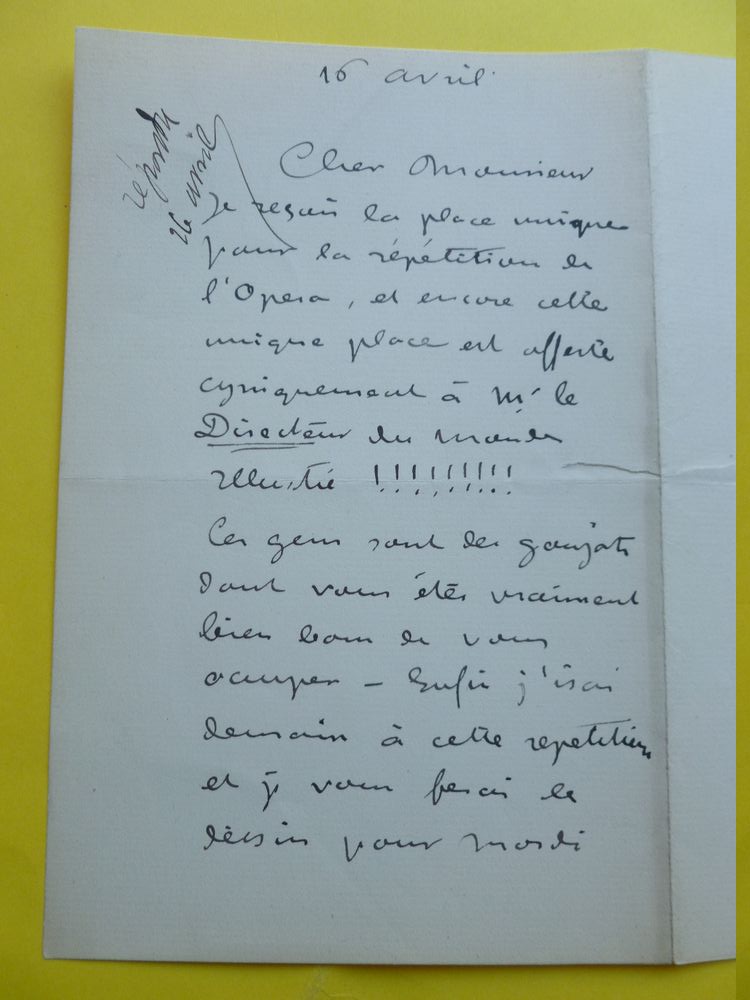 16 avril
répondu
26 avril
Cher Monsieur
je reçois la place unique
pour la répétition de
l'Opera, et encore cette
unique place est offerte
cyniquement à Mr le
Directeur du monde
illustré !!!!!!!!!
Ces gens sont des goujats
dont vous êtes vraiment
bien bon de vous
occuper - Enfin j'irai
demain à cette repetition
et je vous ferai le
dessin pour mardi